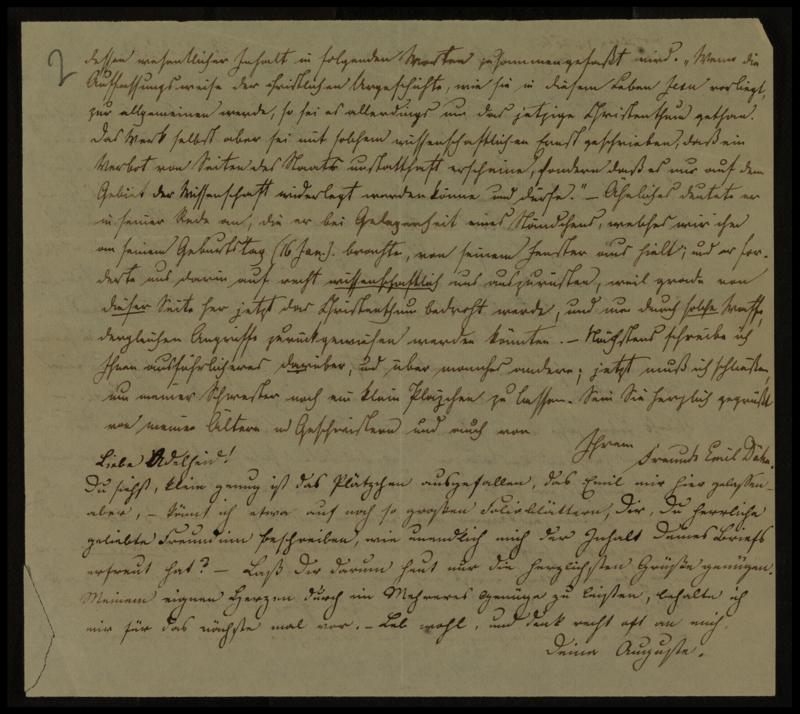 2
dessen wesentlicher Inhalt in folgenden Worten zusammengefaßt wird. „Wenn die
Auffassungsweise der christlichen Urgeschichte, wie sie in diesem Leben Jesu vorliegt,
zur allgemeinen werde, so sei es allerdings um das jetzige Christenthum gethan.
Das Werk selbst aber sei mit solchem wissenschaftlichen Ernst geschrieben, daß ein
Verbot von Seiten des Staats unstatthaft erscheine, sondern daß es nur auf dem
Gebiet der Wissenschaft widerlegt werden könne und dürfe." – Ähnliches deutete er
in seiner Rede an, die er bei Gelegenheit eines Ständchens, welches wir ihm
an seinem Geburtstag (16 Jan.). brachte, von seinem Fenster aus hielt; und er for-
derte uns darin auf recht wissenschaftlich uns auszurüsten, weil grade von
dieser Seite her jetzt das Christenthum bedroht werde, und nur durch solche Waffe,
dergleichen Angriffe zurückgewiesen werden könnten. – Nächstens schreibe ich
Ihnen ausführlicheres darüber, und über manches andere; jetzt muß ich schließen,
um meiner Schwester noch ein klein Pläzchen zu lassen. Sein Sie herzlich gegrüßt
von meinen Ältern u Geschwistern und auch von
Ihrem
Freunde Emil
Liebe Adelheid!
Du siehst, klein genug ist das Plätzchen ausgefallen, das Emil mir hier gelassen –
aber, – könnt ich etwa auf noch so großen Folioblättern, Dir, Du herrliche
geliebte Freundinn beschreiben, wie unendlich mich der Inhalt Deines Briefs
erfreut hat? – Laß Dir darum heut nur die herzlichsten Grüße genügen.
Meinem eignen Herzen durch ein Mehreres Genüge zu leisten, behalte ich
mir für das nächste mal vor. – Leb wohl, und denk recht oft an mich.
Deine Auguste.